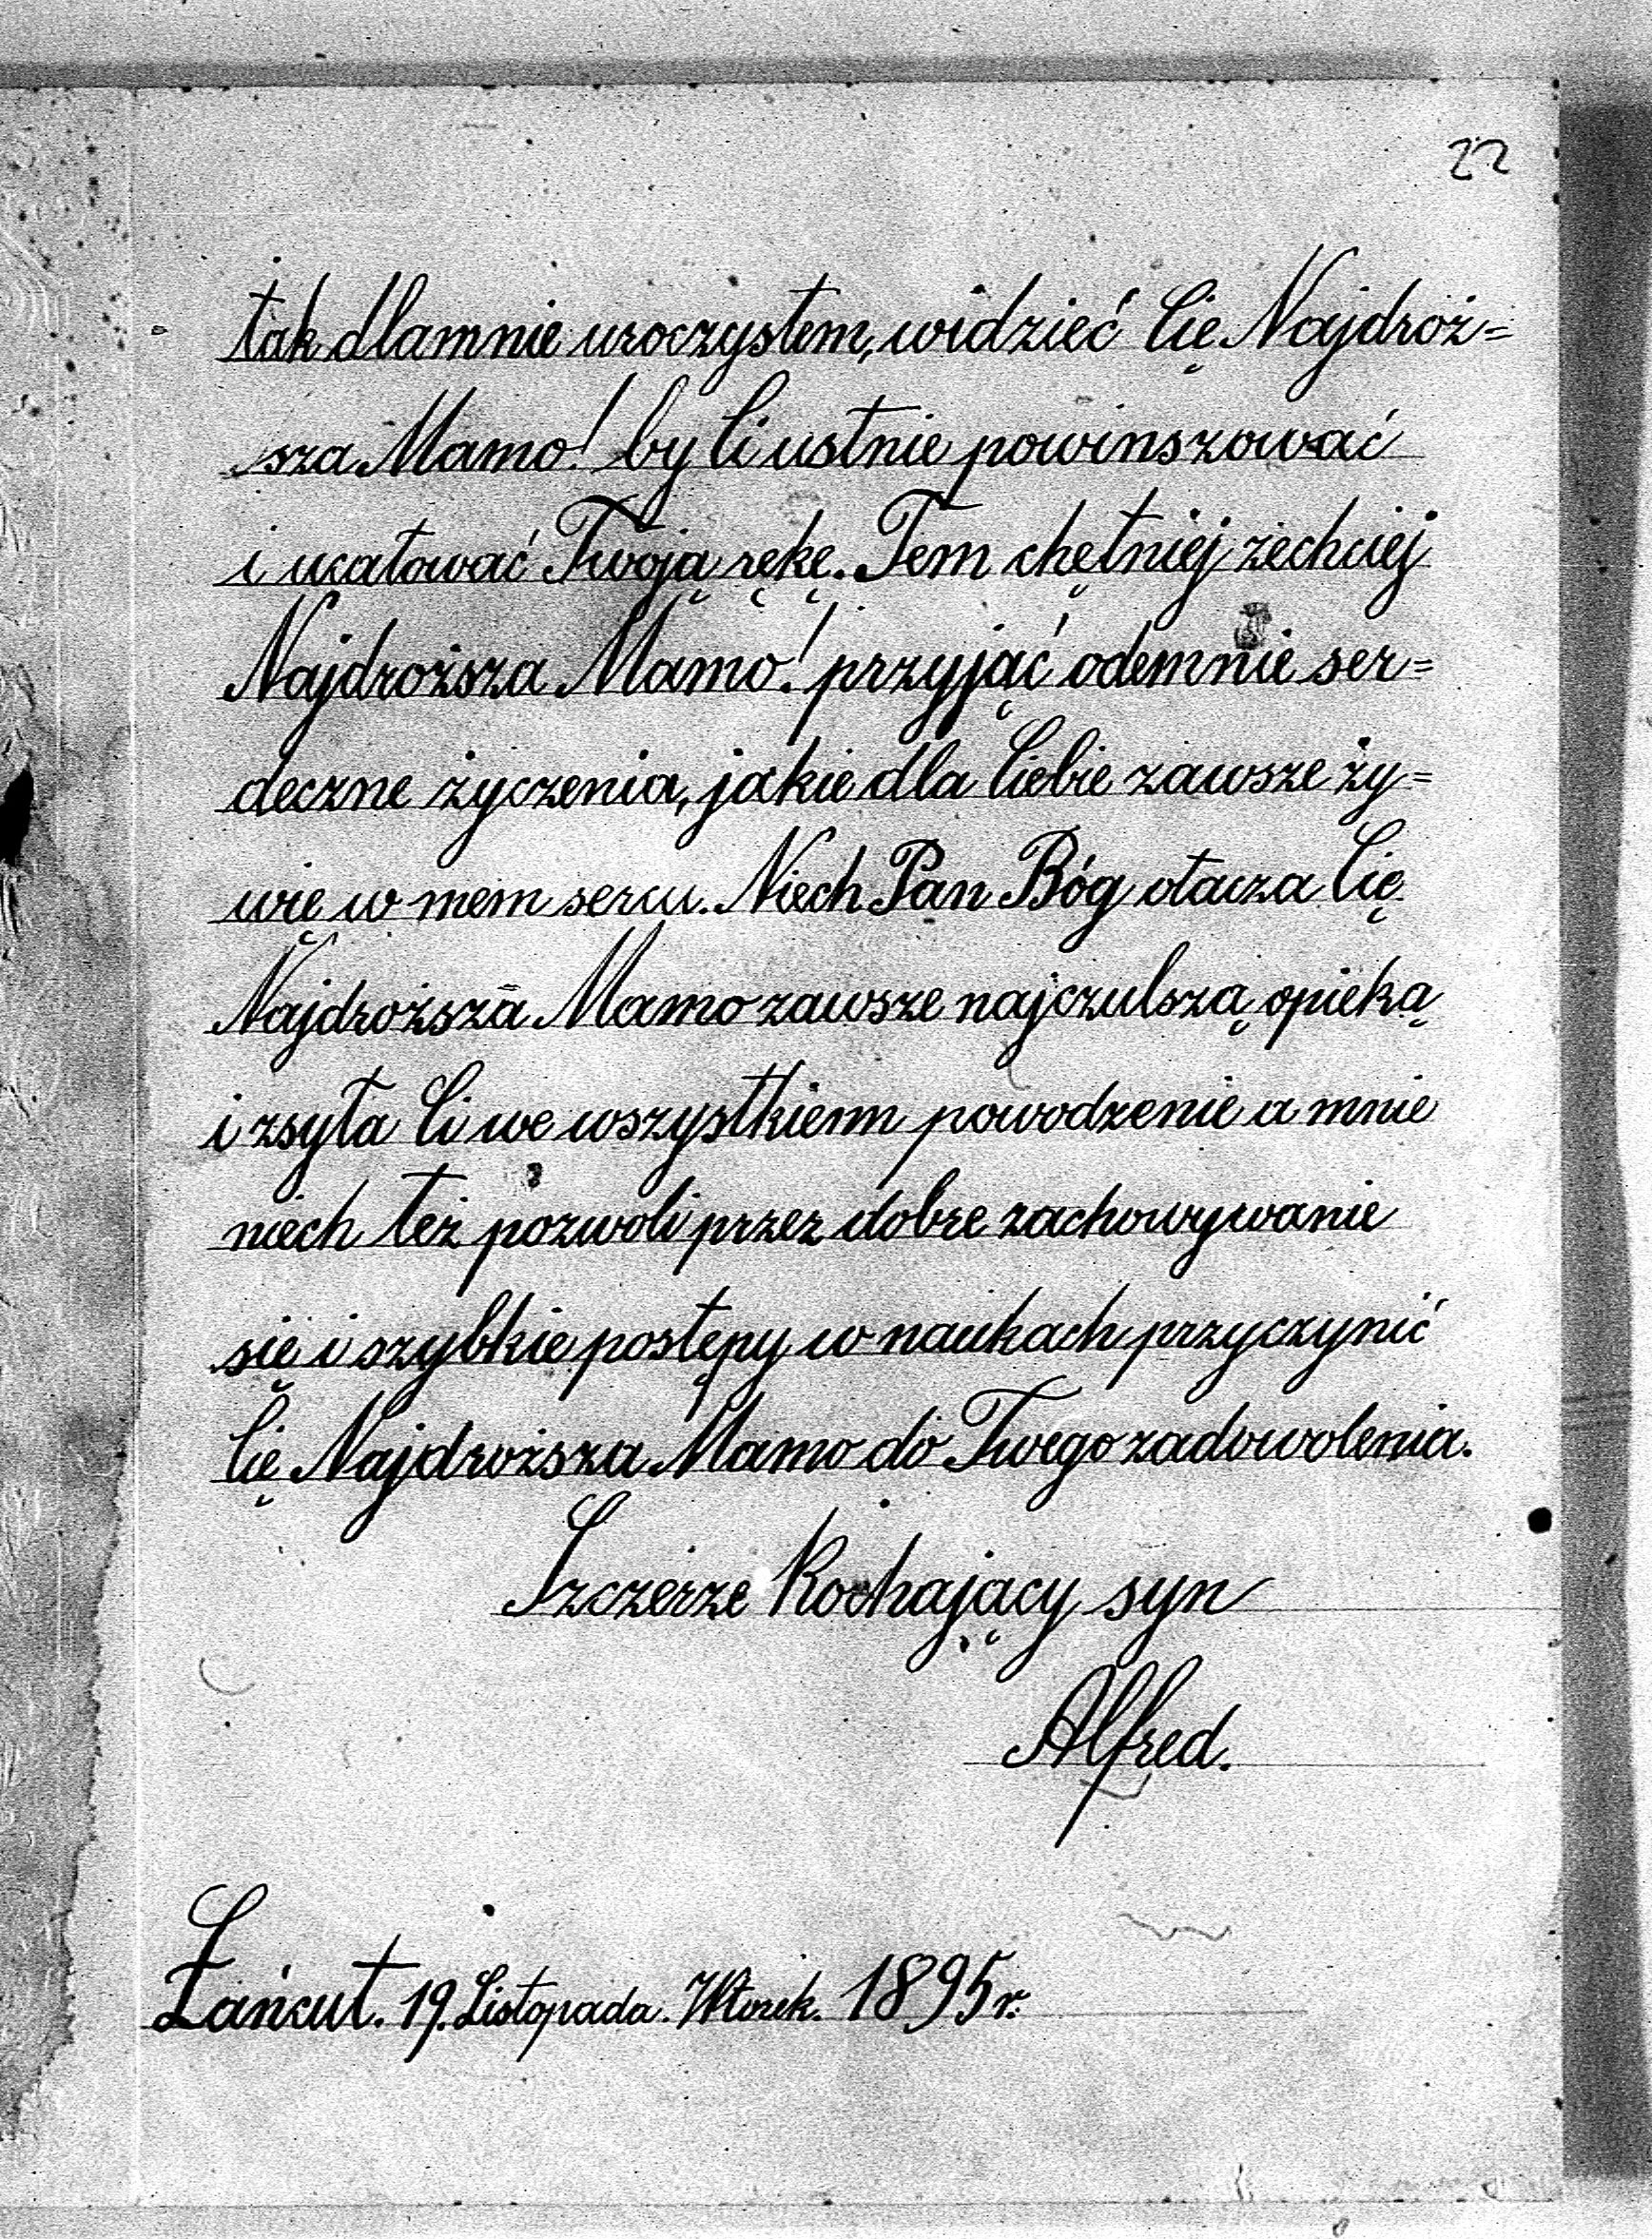 22
tak dlamnie uroczystem, widzieć Cię Najdroż=
sza Mamo! by Ci ustnie powinszować
i ucałować Twoją rękę. Tem chętniej zechciej
Najdroższa Mamo! przyjąć odemnie ser=
deczne życzenia, jakie dla Ciebie zawsze ży=
wię w mem sercu. Niech Pan Bóg otacza Cię
Najdroższa Mamo zawsze najczulszą opieką
i zsyła Ci we wszystkiem powodzenie a mnie
niech też pozwoli przez dobre zachowywanie
się i szybkie postępy w naukach przyczynić
Cię Najdroższa Mamo do Twego zadowolenia.
Szczerze Kochający syn
Alfred.
Łańcut. 19. Listopada. Wtorek. 1895 r.